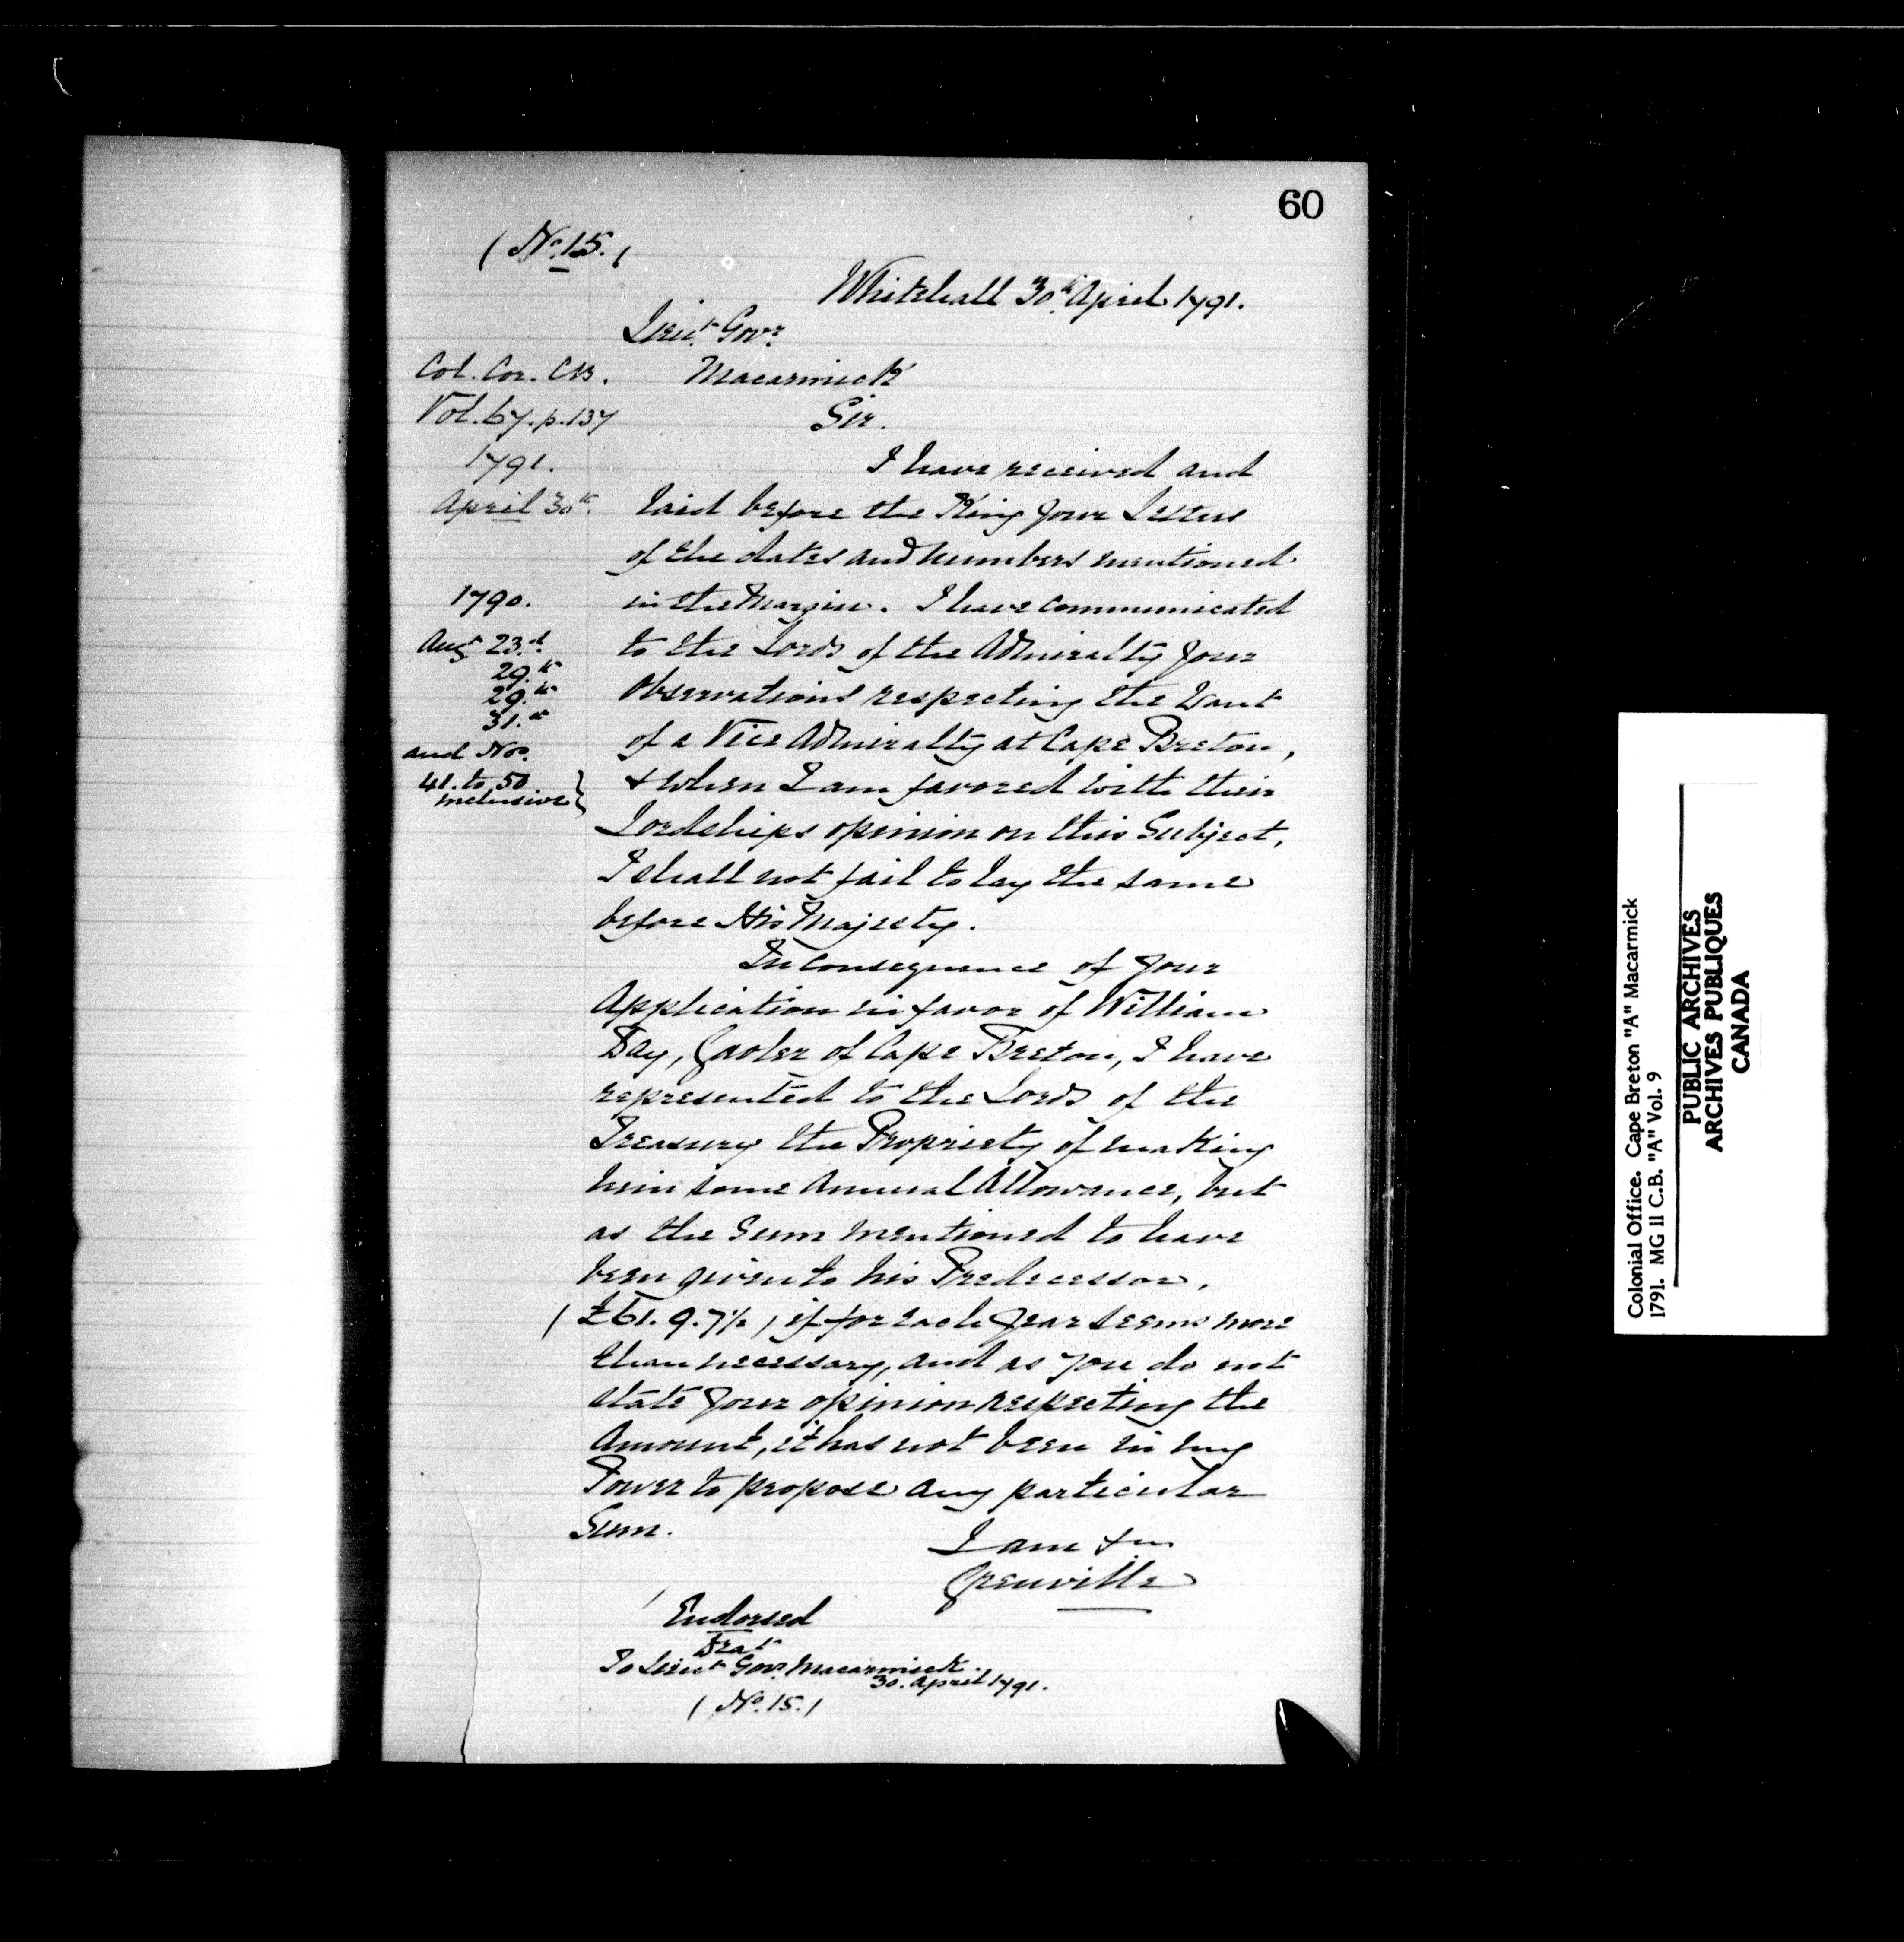 60
( No. 15. )
Whitehall 30th April 1791.
Lieut. Govr.
Macarmick
Sir.
Col. Cor. C.B.
Vol. 67. p. 137
1791.
April 30th.
1790.
Augt 23.d
29.th
29.th
31.st
and Nos.
41. to 50
inclusive }
I have received and
laid before the King your Letters
of the dates and numbers mentioned
in the Margin. I have communicated
to the Lords of the Admiralty your
Observations respecting the Want
of a Vice Admiralty at Cape Breton,
& when I am favored with their
Lordships opinion on this Subject,
I shall not fail to lay the same
before His Majesty.
In consequence of your
Application in favor of William
Day, Gaoler of Cape Breton, I have
represented to the Lords of the
Treasury the Propriety of making
him some Annual Allowance, but
as the Sum mentioned to have
been given to his Predecessor,
( £61. 9. 7½ ) if for each year seems more
than necessary, and as you do not
state your opinion respecting the
Amount, it has not been in my
Power to propose any particular
Sum.
I am &c
Grenville
Endorsed
Drat
To Lieut Govr. Macarmick.
30. April 1791.
( No. 15. )
Colonial Office. Cape Breton "A" Macarmick
1791. MG 11 C.B. "A" Vol. 9
PUBLIC ARCHIVES
ARCHIVES PUBLIQUES
CANADA